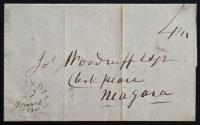 Jos Woodruff Esqr
Clerk peace
Niagara
March